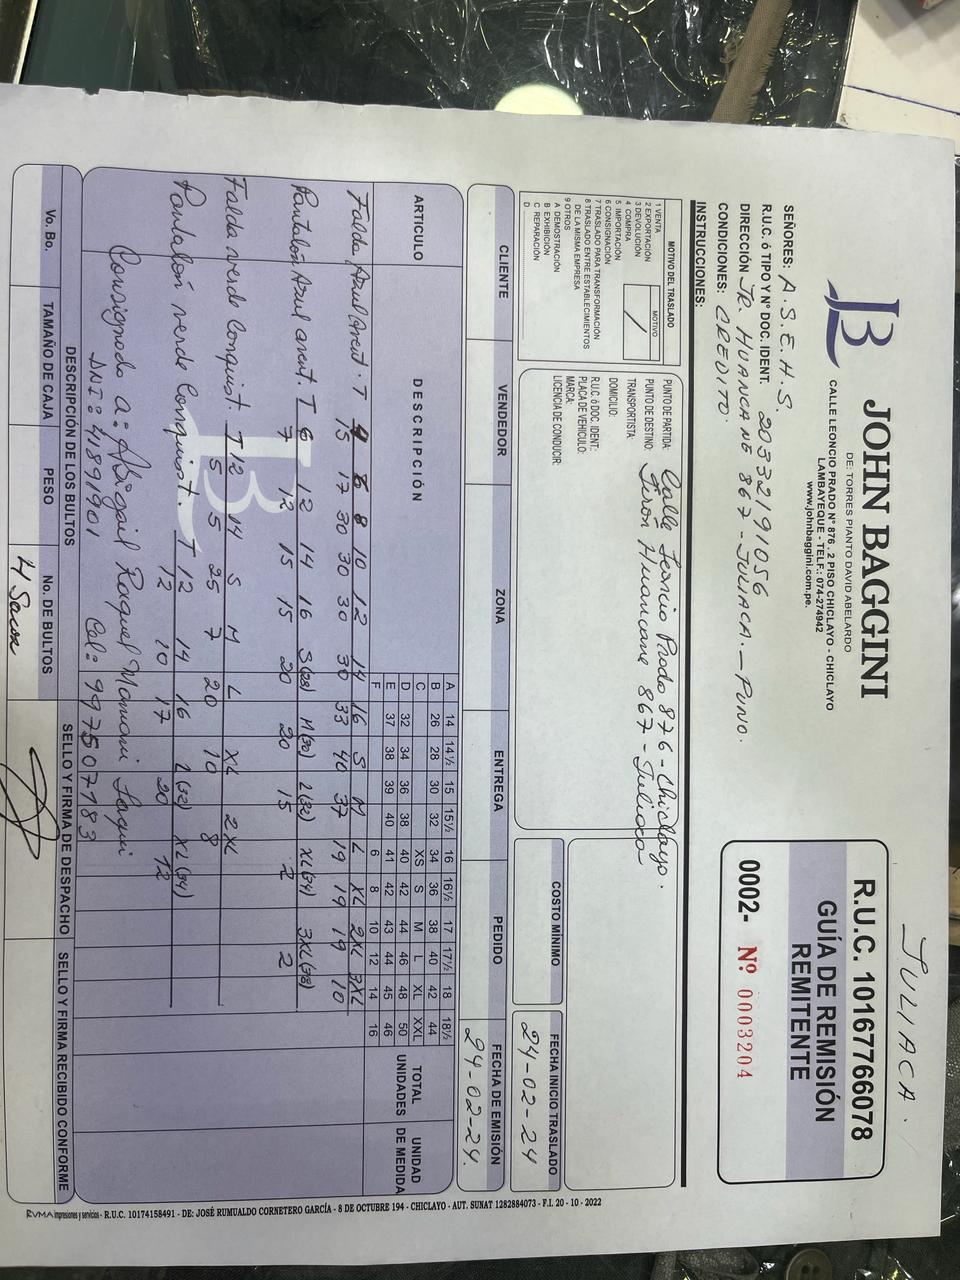 JULIACA.
JB
JOHN BAGGINI
DE: TORRES PIANTO DAVID ABELARDO
CALLE LEONCIO PRADO N° 876 . 2 PISO CHICLAYO - CHICLAYO
LAMBAYEQUE - TELF.: 074-274942
www.johnbaggini.com.pe.
R.U.C. 10167766078
GUÍA DE REMISIÓN
REMITENTE
0002- Nº 0003204
SEÑORES: A.S.E.H.S.
R.U.C. ó TIPO Y Nº DOC. IDENT. 20332191056
DIRECCIÓN JR. HUANCANE 867 - JULIACA. - PUNO.
CONDICIONES: CREDITO.
INSTRUCCIONES:
MOTIVO DEL TRASLADO
1 VENTA
2 EXPORTACIÓN
3 DEVOLUCIÓN
4 COMPRA
5 IMPORTACIÓN
6 CONSIGNACIÓN
7 TRASLADO PARA TRANSFORMACIÓN
8 TRASLADO ENTRE ESTABLECIMIENTOS
DE LA MISMA EMPRESA
9 OTROS
A DEMOSTRACIÓN
B EXHIBICIÓN
C REPARACIÓN
D
MOTIVO
1
PUNTO DE PARTIDA: Calle Leoncio Prado 876 - Chiclayo.
PUNTO DE DESTINO: Jirón Huancane 867 - Juliaca
TRANSPORTISTA:
DOMICILIO:
R.U.C. ó DOC. IDENT:
PLACA DE VEHICULO:
MARCA:
LICENCIA DE CONDUCIR:
COSTO MÍNIMO
FECHA INICIO TRASLADO
24-02-24
CLIENTE VENDEDOR ZONA ENTREGA PEDIDO FECHA DE EMISIÓN
24-02-24.
ARTICULO DESCRIPCIÓN TOTAL UNIDADES UNIDAD DE MEDIDA
A 14 14½ 15 15½ 16 16½ 17 17½ 18 18½
B 26 28 30 32 34 36 38 40 42 44
C XS S M L XL XXL
D 32 34 36 38 40 42 44 46 48 50
E 37 38 39 40 41 42 43 44 45 46
F 6 8 10 12 14 16
Falda Azul Anent. T 4 6 8 10 12 14 16 S M L XL 2XL 3XL
15 17 30 30 30 30 33 40 37 19 19 19 10
Pantalón Azul anent. T 6 12 14 16 S(28) M(30) L(32) XL(34) 3XL(38)
7 12 15 15 20 20 15 2 2
Falda verde Conquist. T 12 14 S M L XL 2XL
5 5 25 7 20 10 8
Pantalón verde Conquist. T 12 14 16 L(32) XL(34)
12 10 17 20 12
Consignado a: Abigail Raquel Mamani Laqui
DNI: 41891901 Cel: 997507783
DESCRIPCIÓN DE LOS BULTOS SELLO Y FIRMA DE DESPACHO SELLO Y FIRMA RECIBIDO CONFORME
Vo. Bo. TAMAÑO DE CAJA PESO No. DE BULTOS
4 Sacos
RVMA impresiones y servicios - R.U.C. 10174158491 - DE: JOSÉ RUMUALDO CORNETERO GARCÍA - 8 DE OCTUBRE 194 - CHICLAYO - AUT. SUNAT 1282884073 - F.I. 20 - 10 - 2022